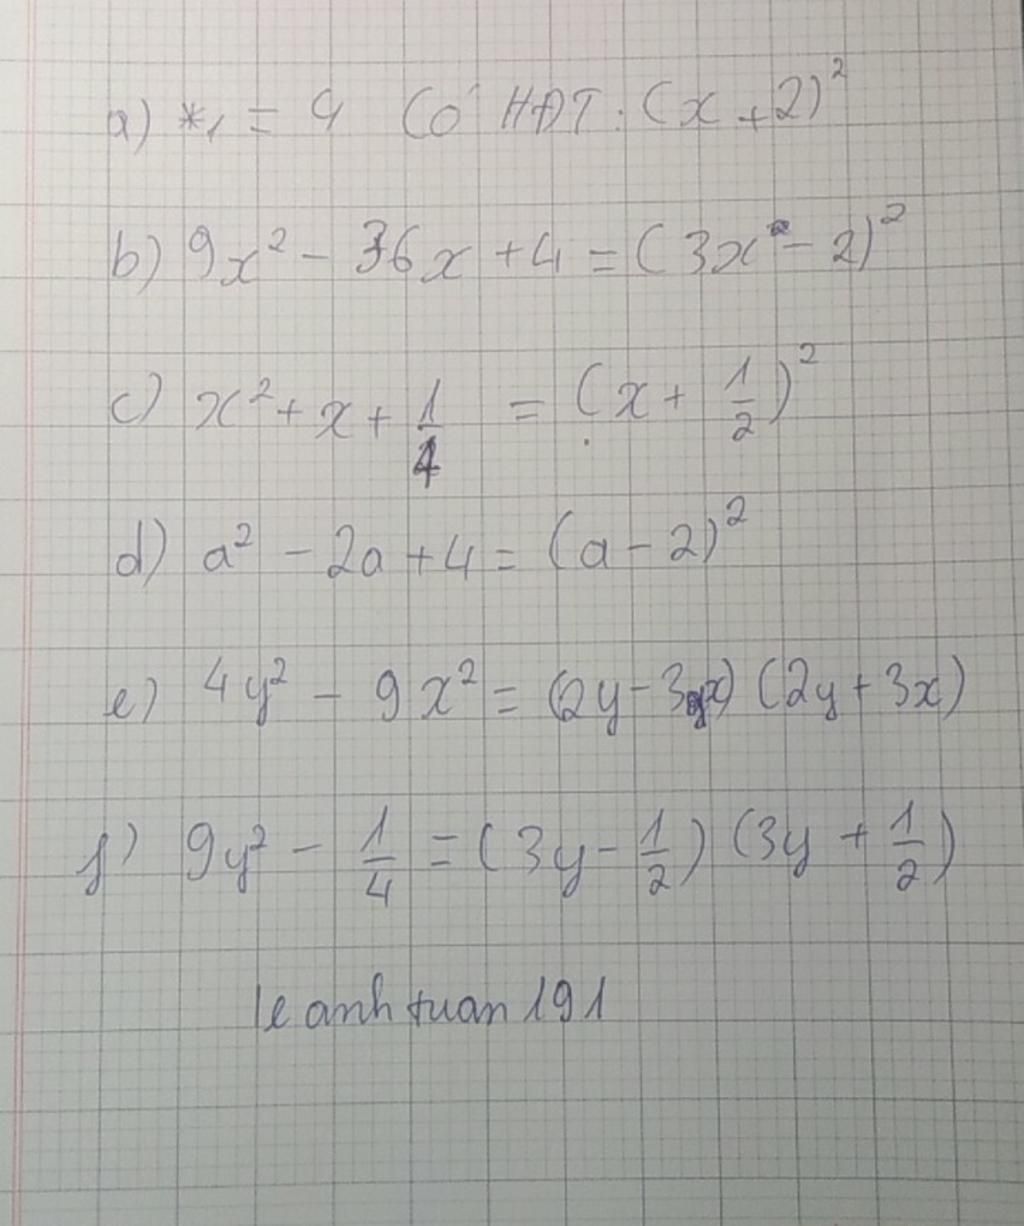 a) *₁ = 4 Có HĐT: (x + 2)²
b) 9x² - 36x + 4 = (3x - 2)²
c) x² + x + 1/4 = (x + 1/2)²
d) a² - 2a + 4 = (a - 2)²
e) 4y² - 9x² = (2y - 3x) (2y + 3x)
f) 9y² - 1/4 = (3y - 1/2) (3y + 1/2)
le anh tuan 191